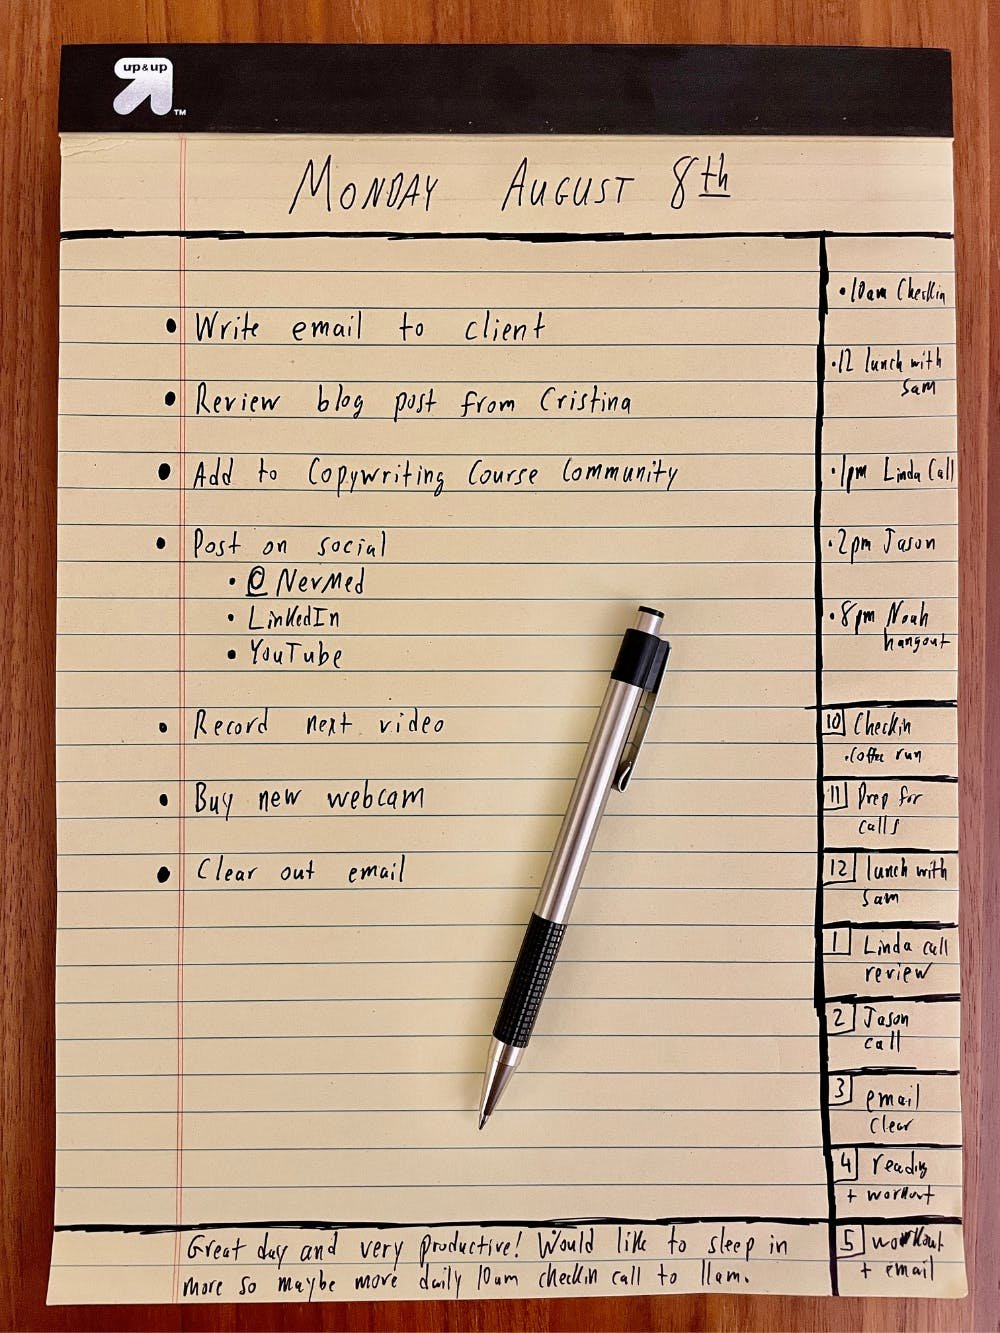 up&up
TM
MONDAY AUGUST 8th
• Write email to client
• Review blog post from Cristina
• Add to Copywriting Course Community
• Post on social
• @NevMed
• LinkedIn
• YouTube
• Record next video
• Buy new webcam
• Clear out email
• 10am Checkin
• 12 lunch with
Sam
• 1pm Linda Call
• 2pm Jason
• 8pm Noah
hangout
10 Checkin
• Coffee run
11 Prep for
calls
12 lunch with
Sam
1 Linda call
review
2 Jason
call
3 email
clear
4 reading
+ workout
5 workout
+ email
Great day and very productive! Would like to sleep in
more so maybe more daily 10am checkin call to 11am.